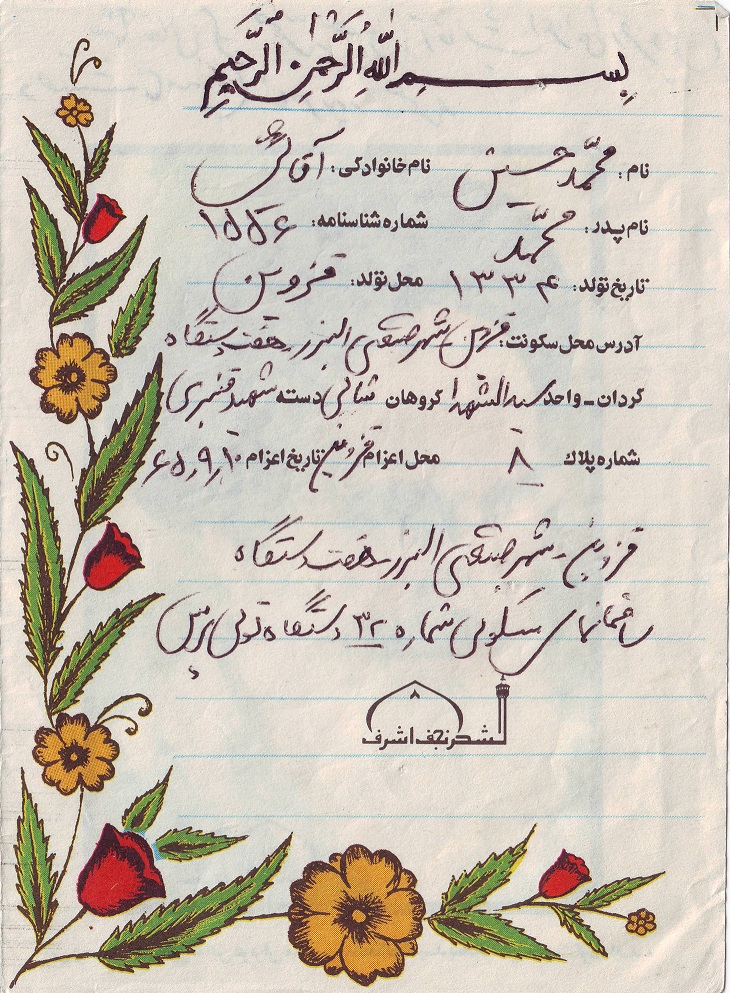 بسم الله الرحمن الرحیم
نام: محمّد حسین نام خانوادگی: آقائی
نام پدر: محمّد شماره شناسنامه: ۱۵۵۶
تاریخ تولد: ۱۳۳۴ محل تولد: قزوین
آدرس محل سکونت: قزوین شهر صنعتی البرز هفت دستگاه
گردان - واحد سیدالشهدا گروهان دسته شهید قنبری
شماره پلاک ۸ محل اعزام قزوین تاریخ اعزام ۶۵٫۹٫۱۰
قزوین - شهر صنعتی البرز - هفت دستگاه
ساختمانهای مسکونی شماره ۳۲ دستگاه
لشکر نجف اشرف